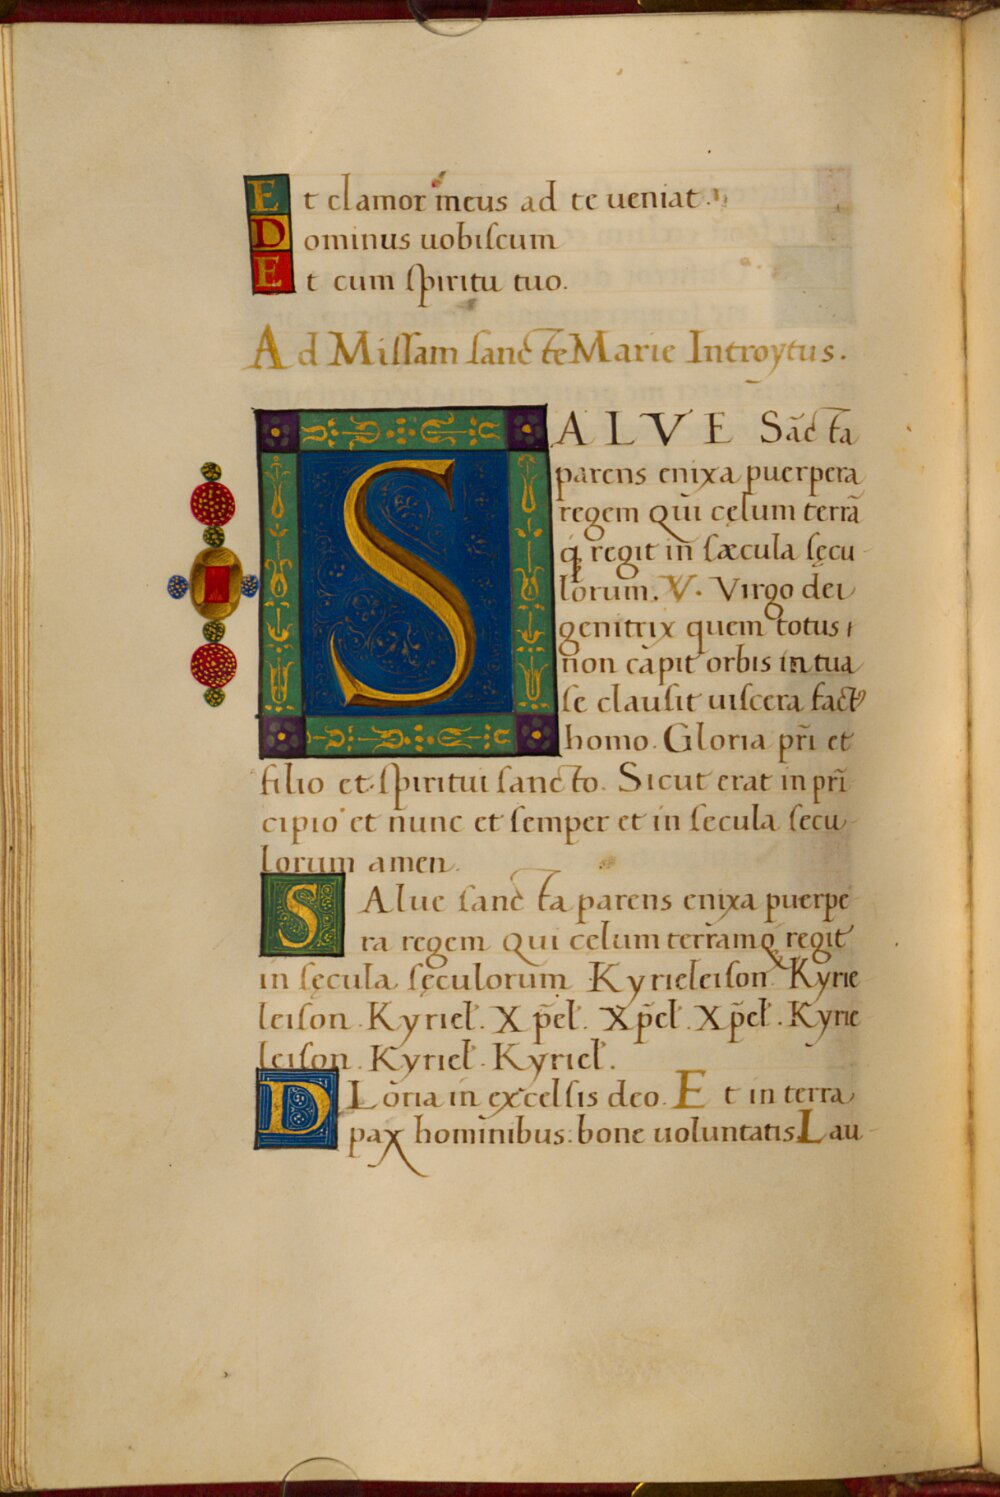 Et clamor meus ad te ueniat.
Dominus uobiſcum
Et cum ſpiritu tuo.
Ad Miſſam ſancte Marie Introytus.
SALVE Sãcta
parens enixa puerpera
regem Qui celum terrã
q̃ regit in ſæcula ſęcu
lorum. V. Virgo dei
genitrix quem totus
non capit orbis in tua
ſe clauſit uiſcera fact9
homo. Gloria pr̃i et
filio et ſpiritui ſancto. Sicut erat in prĩ
cipio et nunc et ſemper et in ſecula ſecu
lorum amen.
SAlue ſancta parens enixa puerpe
ra regem Qui celum terramq̃ regit
in ſęcula ſęculorum Kyrieleiſon. Kyrie
leiſon. Kyriel̃. Xp̃el̃. Xp̃el̃. Xp̃el̃. Kyrie
leiſon. Kyriel̃. Kyriel̃.
DLoria in excelſis deo. Et in terra
pax hominibus: bone uoluntatis Lau